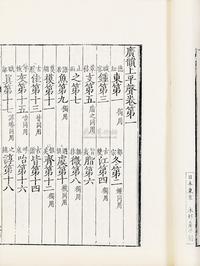 廣韻上平聲卷第一
東第一 獨用
冬第二 鍾同用
鍾第三
江第四 獨用
支第五 脂之同用
脂第六
之第七
微第八 獨用
魚第九 獨用
虞第十 模同用
模第十一
齊第十二 獨用
佳第十三 皆同用
皆第十四
灰第十五 咍同用
咍第十六
真第十七 諄臻同用
諄第十八
日本東京 木村嘉平